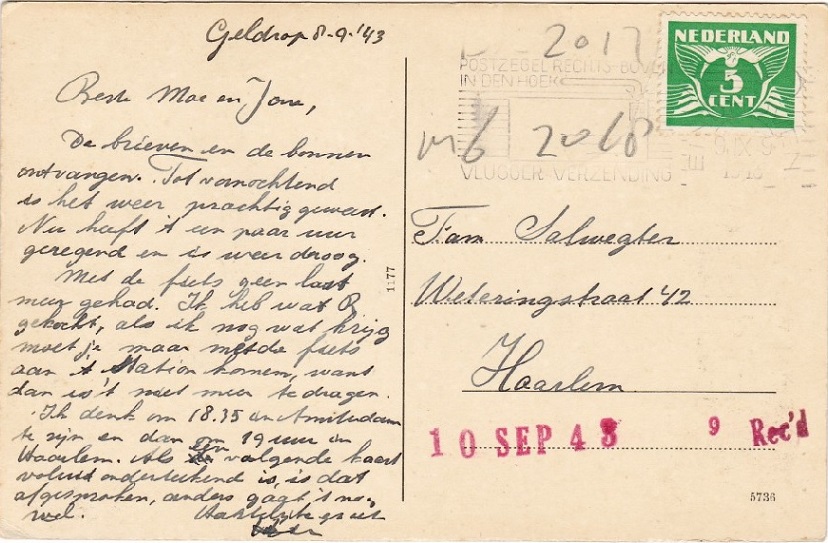 Geldrop 8-9-'43
Beste Moe en Jona,
De brieven en de bonnen
ontvangen. Tot vanochtend
is het weer prachtig geweest.
Nu heeft 't een paar uur
geregend en is weer droog.
Met de fiets geen last
meer gehad. Ik heb wat
gekocht, als ik nog wat krijg
moet je maar met de fiets
aan 't station komen, want
dan is't niet meer te dragen.
Ik denk om 18.35 in Amsterdam
te zijn en dan om 19 uur in
Haarlem. Als volgende kaart
voluit onderteekend is, is dat
afgesproken, anders gaat 't nog
wel. Hartelijke groet
1177
2017
POSTZEGEL RECHTS-BOVEN
IN DEN HOEK
m6 2018
VLUGGER VERZENDING
NEDERLAND
5
CENT
Fam Salwegter
Weteringstraat 42
Haarlem
10 SEP 43 9 Rec'd
5736